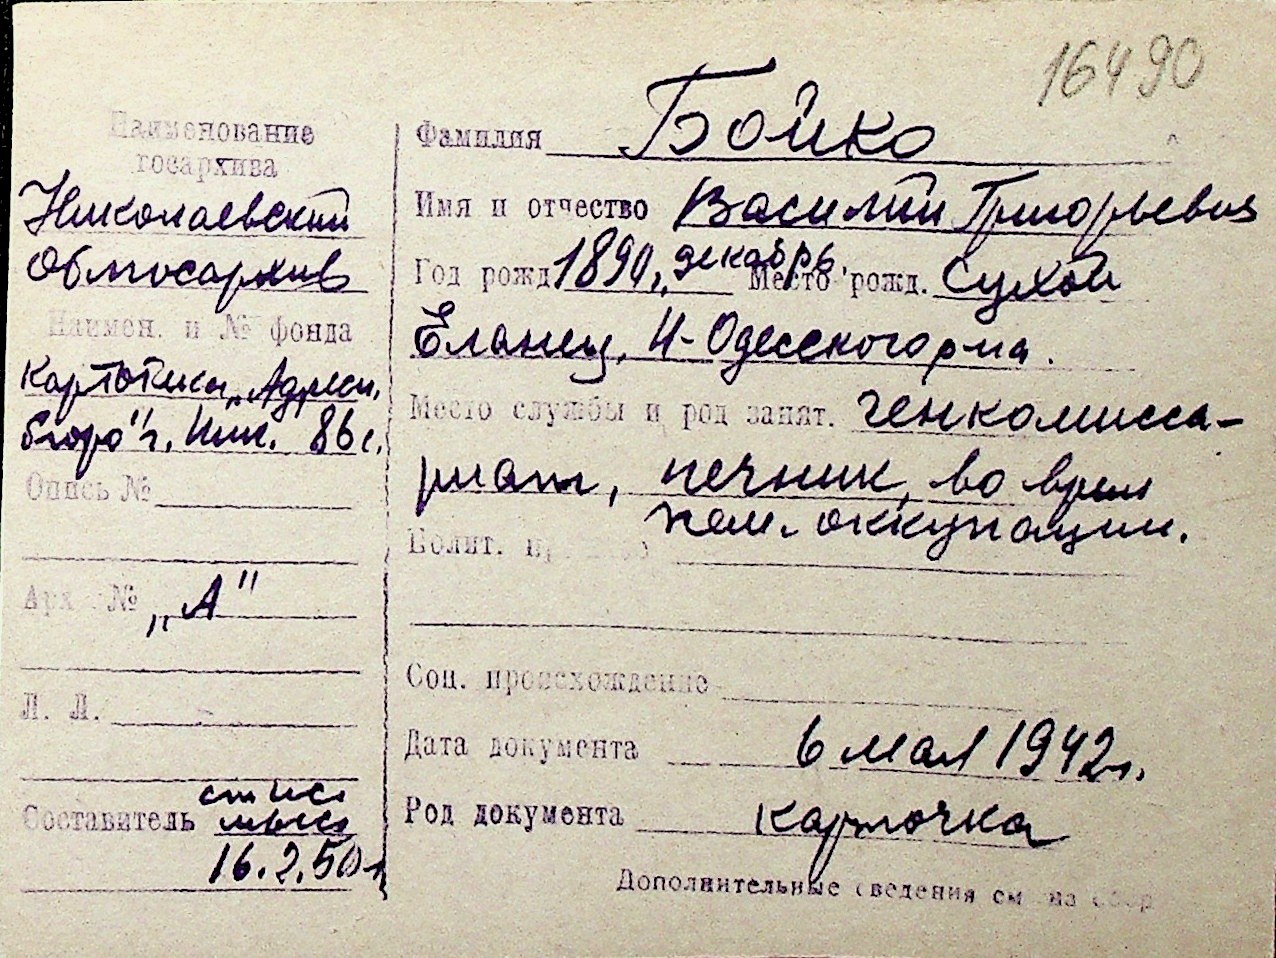 16490
Наименование
госархива
Николаевский
Облгосархив
Наимен. и № фонда
Картотека „Адресн.
бюро" г. Ник. 86 с.
Опись №
Арх №
„А"
Л. Л.
Составитель
16.2.50 г.
Фамилия Бойко
Имя и отчество Василий Григорьевич
Год рожд 1890, декабрь Место рожд. Сухой
Еланец, Н-Одесского р-на.
Место службы и род занят. генкомисса-
риат, печник, во время
нем. оккупации.
Полит.
Соц. происхождение
Дата документа 6 мая 1942 г.
Род документа карточка
Дополнительные сведения см на обор